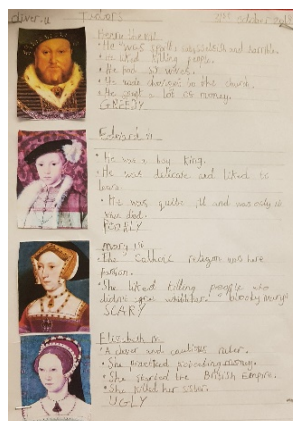 Oliver.u Tudors
Henry the VIII
• He was smelly and selfish and horrible.
• He liked killing people.
• He had six wives.
• He made divorces so the church.
• He spent a lot of money.
GREEDY
Edward vi
• he was a boy king.
• He was delicate and liked to
learn.
• He was quite ill and was only 16
when died.
POORLY
mary
• The Catholic religion was her
passion.
• She liked killing people who
didn't "bloody mary"
SCARY
Elizabeth
• A clever and cautious ruler.
• She practised
• She started the British Empire.
• She killed her sister.
UGLY